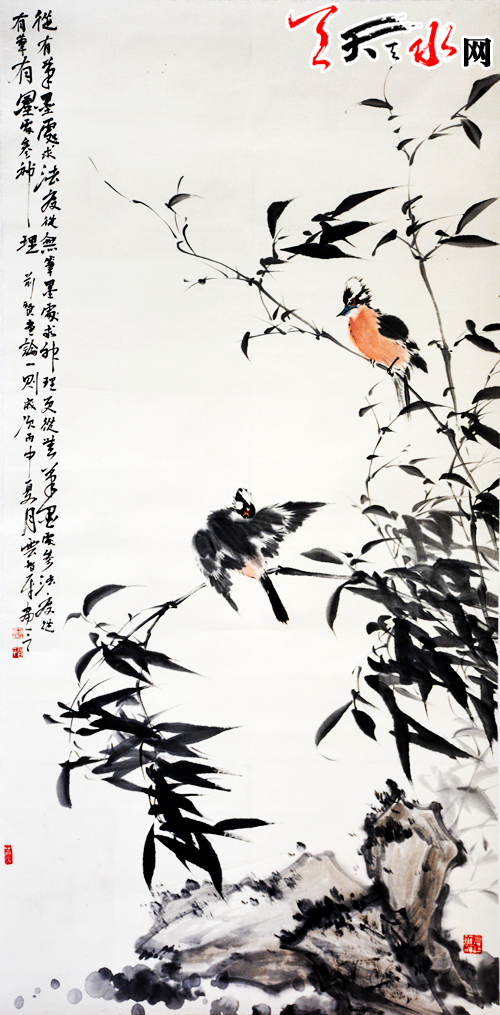 天天天水网
從有筆墨處求法度從無筆墨處求神理更從無筆墨處參法度從
有筆有墨處參神理 前賢畫論一則歲次丙申夏月